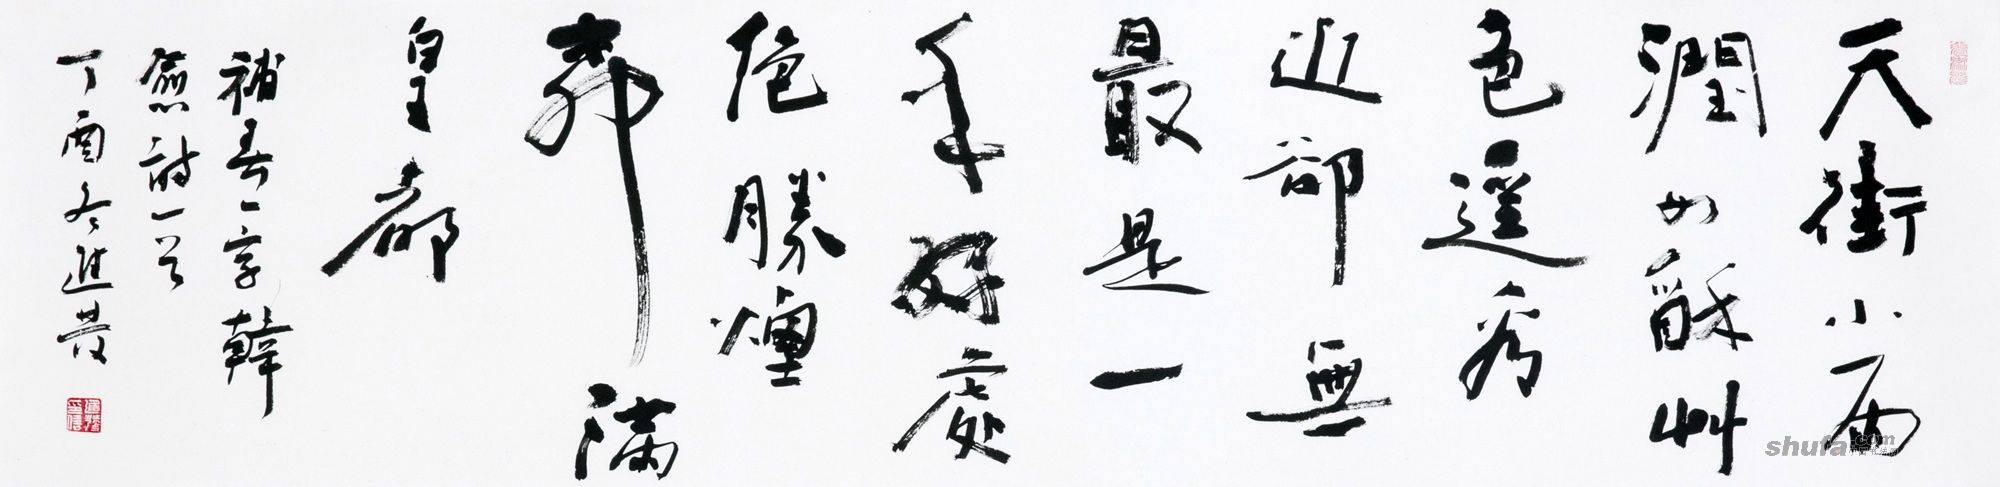 天街小雨
潤如酥艸
色遥看
近却無
最是一
年好處
絶勝煙
柳滿
皇都
補春一字韓
愈詩一首
丁酉冬進發
shufa.com